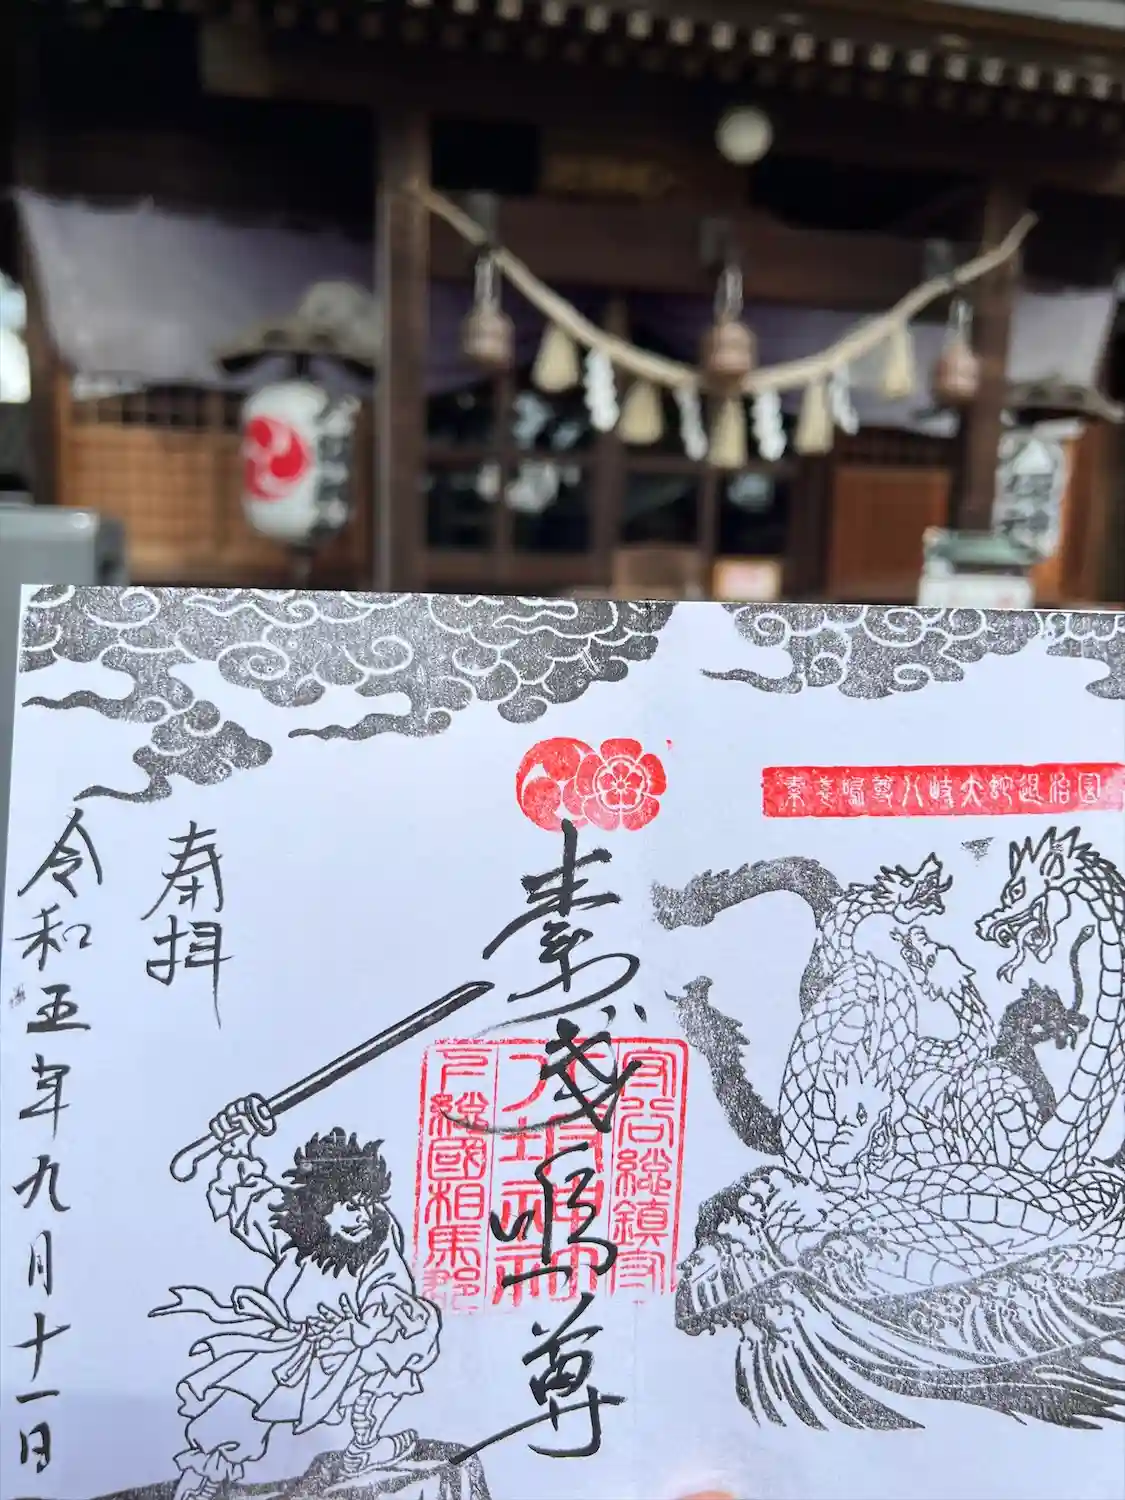 素戔嗚尊八岐大蛇退治図
素戔嗚尊
守谷総鎮守
八坂神社
下総國相馬郡
奉拝
令和五年九月十一日